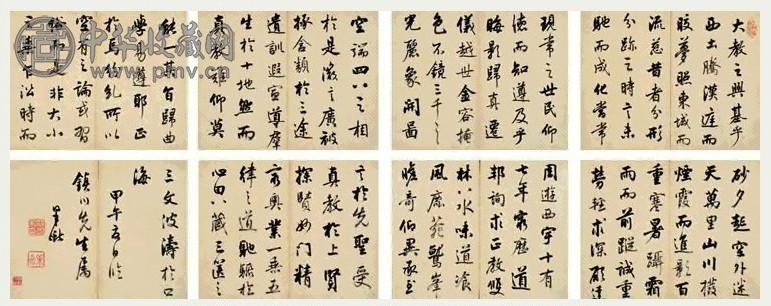 大教之興基乎
西土騰漢庭而
皎夢照東域而
流慈昔者分形
分跡之時言未
馳而成化當常
現常之世民仰
德而知遵及乎
晦影歸真遷
儀越世金容掩
色不鏡三千之
光麗象開圖
空端四八之相
於是微言廣被
拯含類於三途
遺訓遐宣導群
生於十地然而
真教難仰莫
能一其旨歸曲
學易遵邪正
於焉紛糺所以
空有之論或習
俗而是非大小
之乘乍沿時而
砂夕起空外迷
天萬里山川撥
煙霞而進影百
重寒暑躡霜
雨而前蹤誠重
勞輕求深願達
周遊西宇十有
七年窮歷道
邦詢求正教雙
林八水味道飡
風鹿菀鷲峯
瞻奇仰異承至
言於先聖受
真教於上賢
探賾妙門精
窮奧業一乘五
律之道馳驟於
心田八藏三篋之
三文波濤於口
海
甲午
鎮川先生屬
中华收藏网
www.pmv.cn